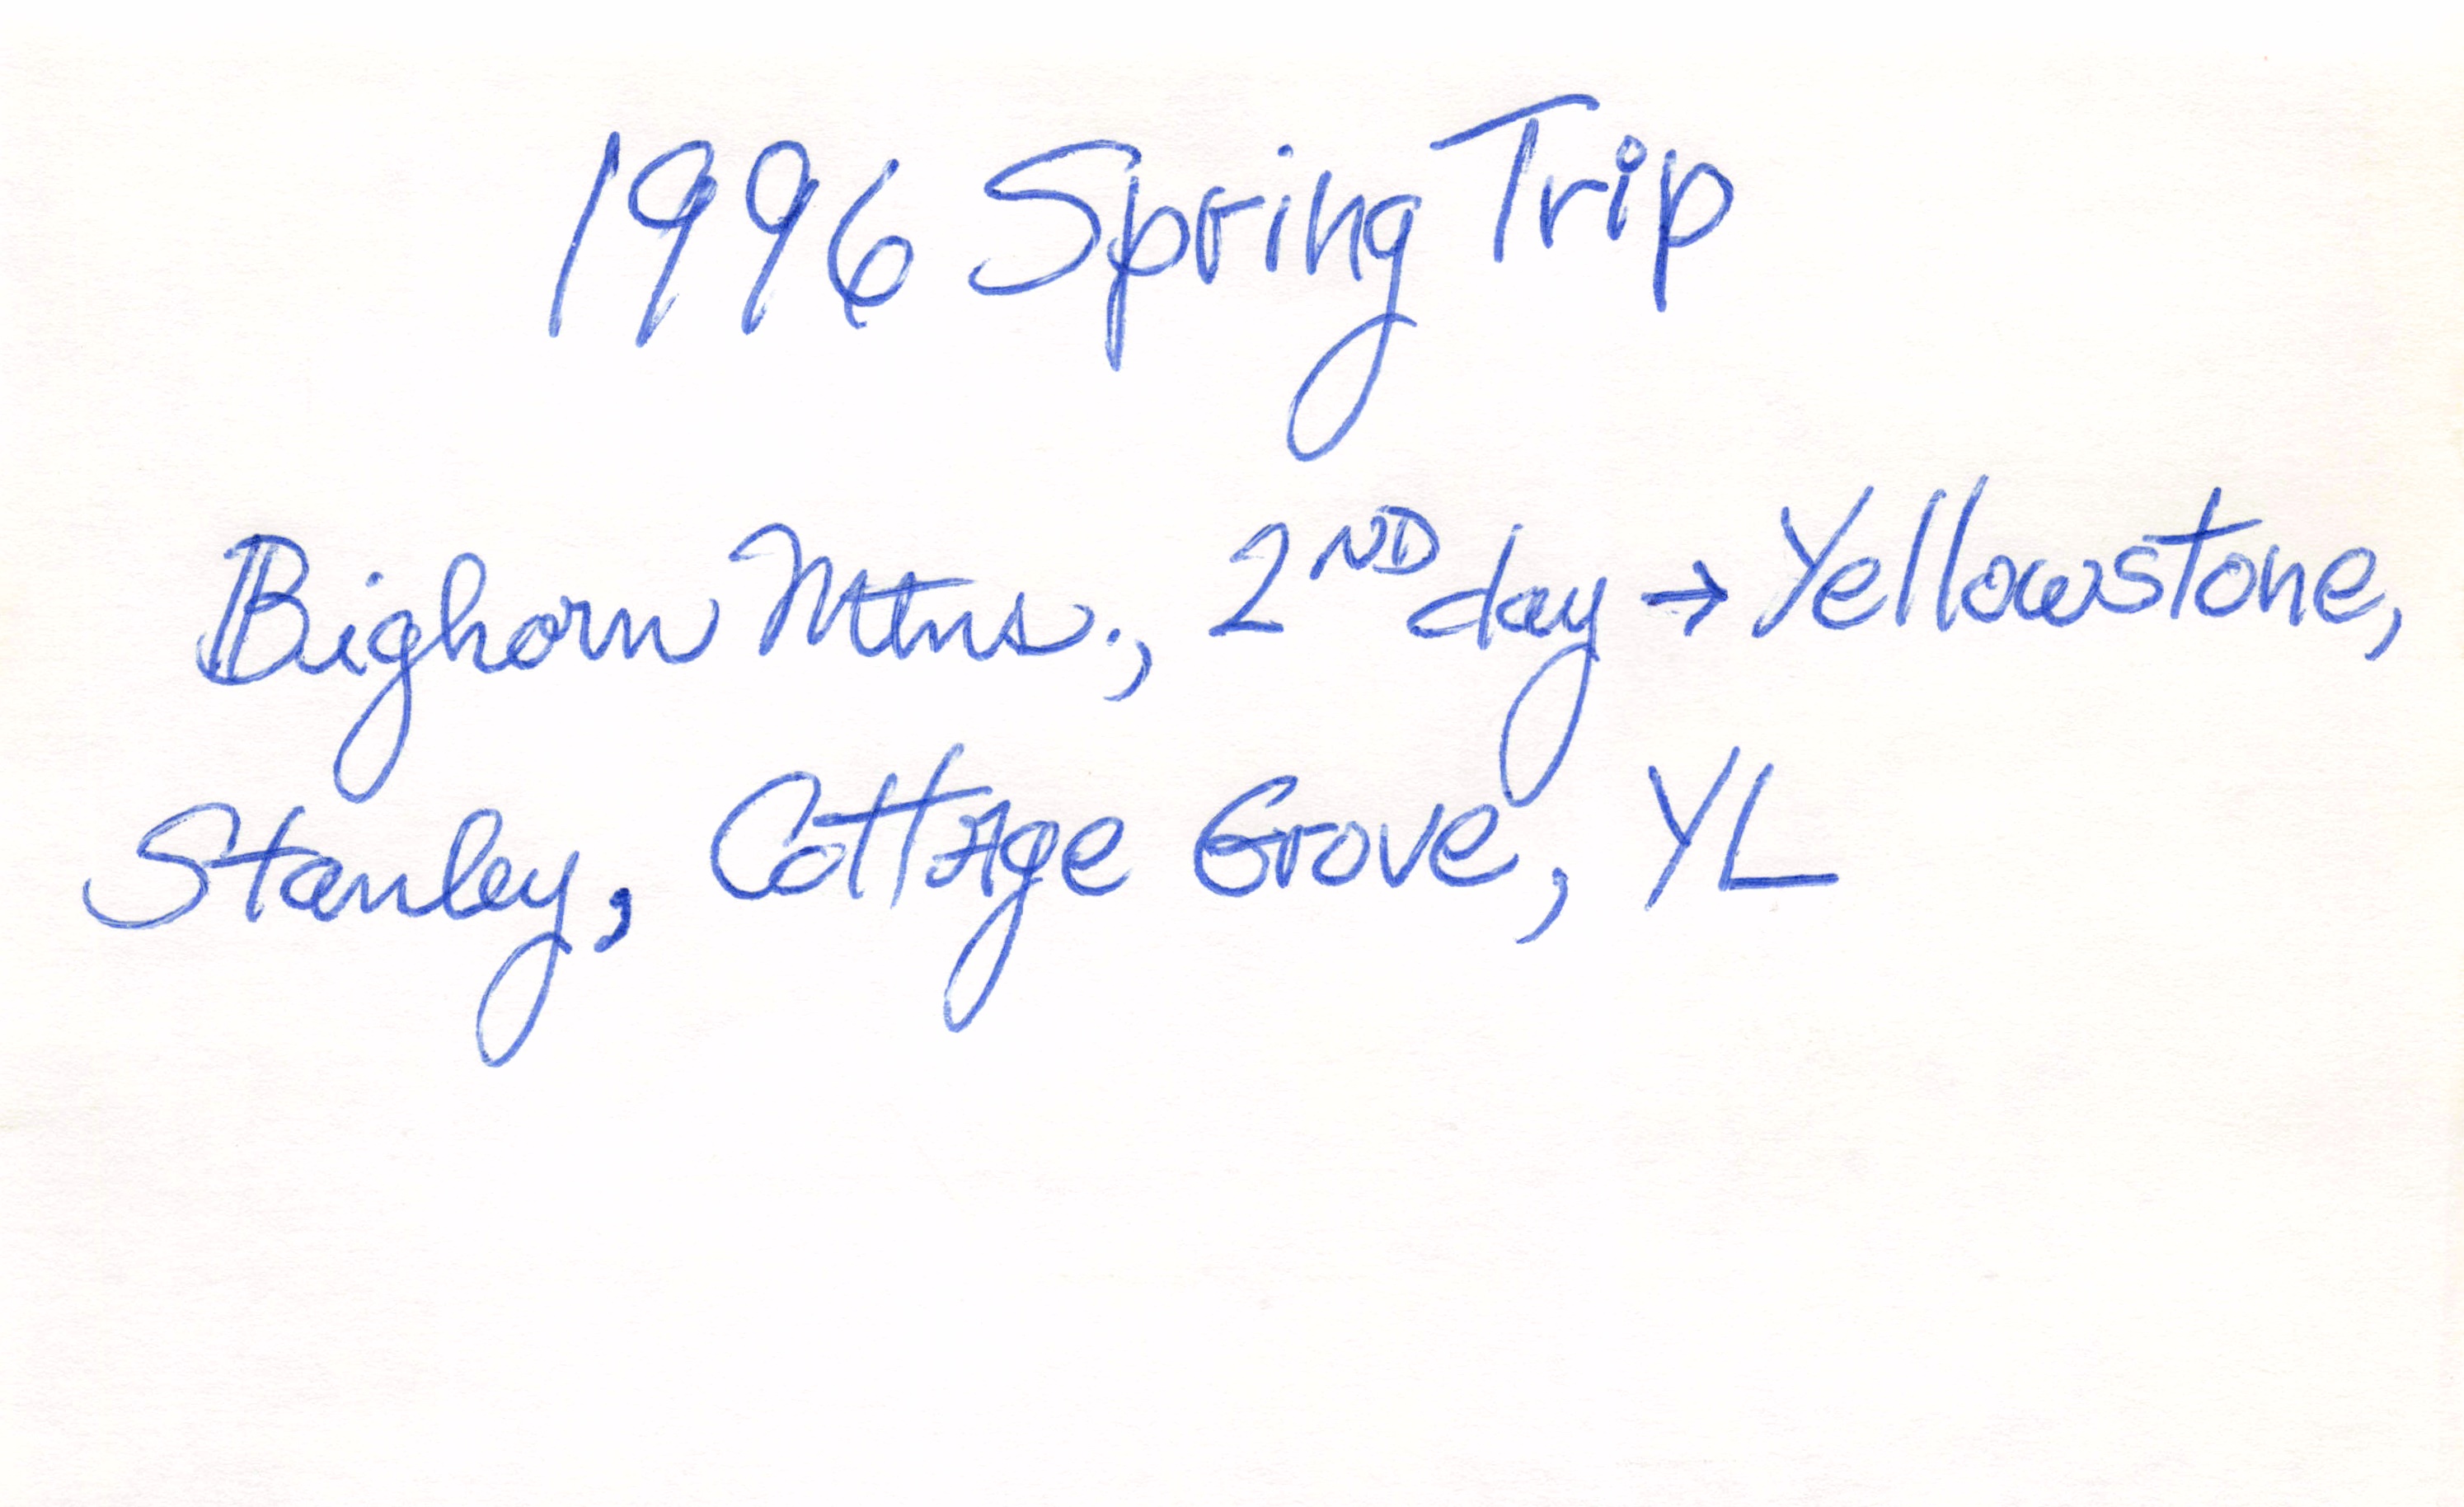 1996 Spring Trip
Bighorn Mtns., 2ND day → Yellowstone,
Stanley, Cottage Grove, YL